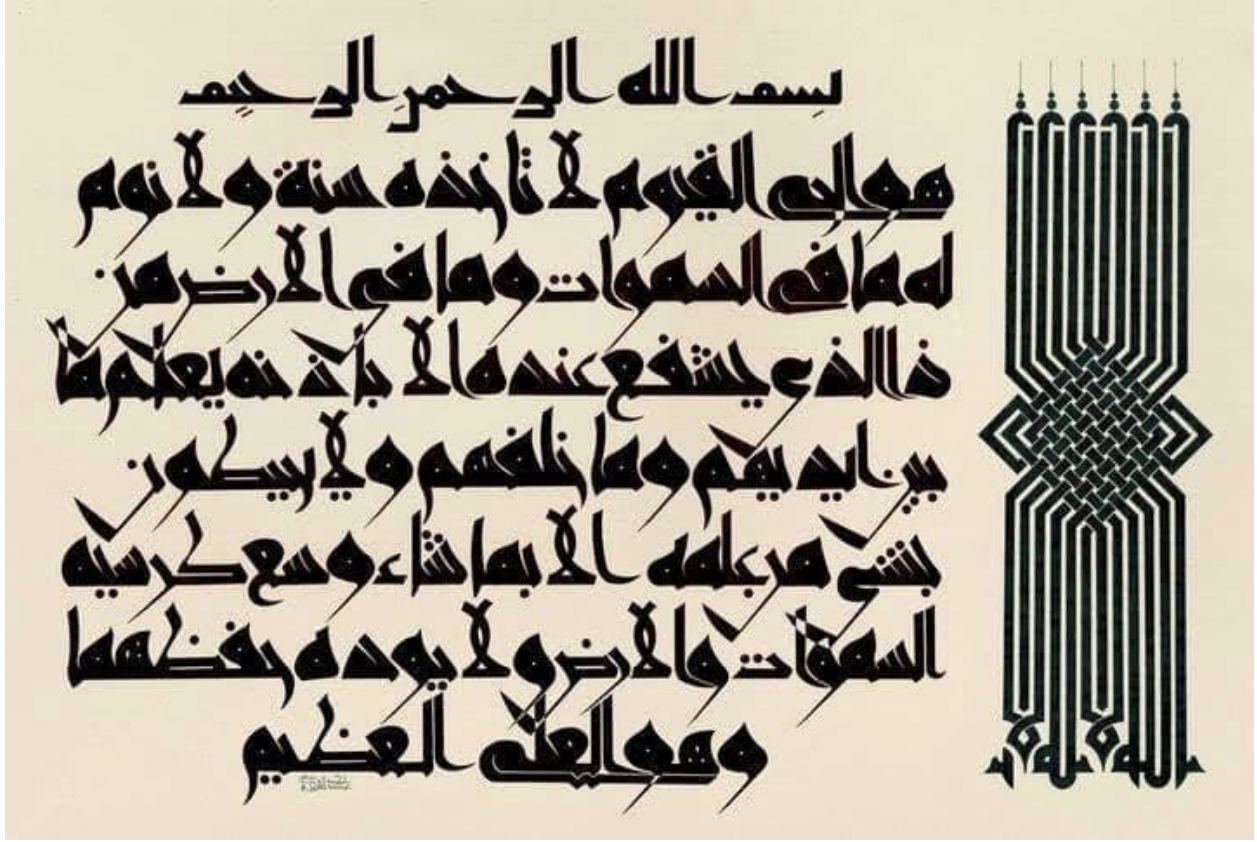 بسم الله الرحمن الرحيم
الله لا اله الا
هو الحي القيوم لا تاخذه سنة ولا نوم
له ما في السموات وما في الارض من
ذا الذي يشفع عنده الا باذنه يعلم ما
بين ايديهم وما خلفهم ولا يحيطون
بشي من علمه الا بما شاء وسع كرسيه
السموات والارض ولا يوده حفظهما
وهو العلي العظيم